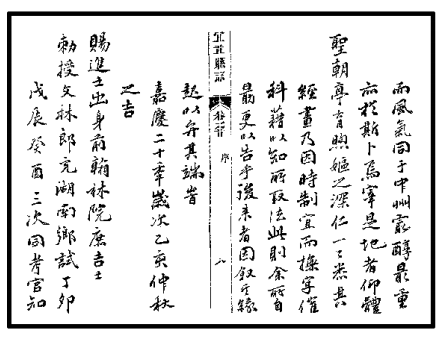 而風氣同于中州醇最重
亦於斯卜焉宰是地者仰體
聖朝亭育煦嫗之深仁一一悉其
經畫乃因時制宜而撫字催
科藉以知所取法此則余所自
勗更以告乎後来者因叙其緣
縣誌
卷首
序
起以弁其端旹
嘉慶二十年歲次乙亥仲秋
之吉
賜進士出身前翰林院庶吉士
勅授文林郎充湖南鄉試丁卯
戊辰癸酉三次同考官知